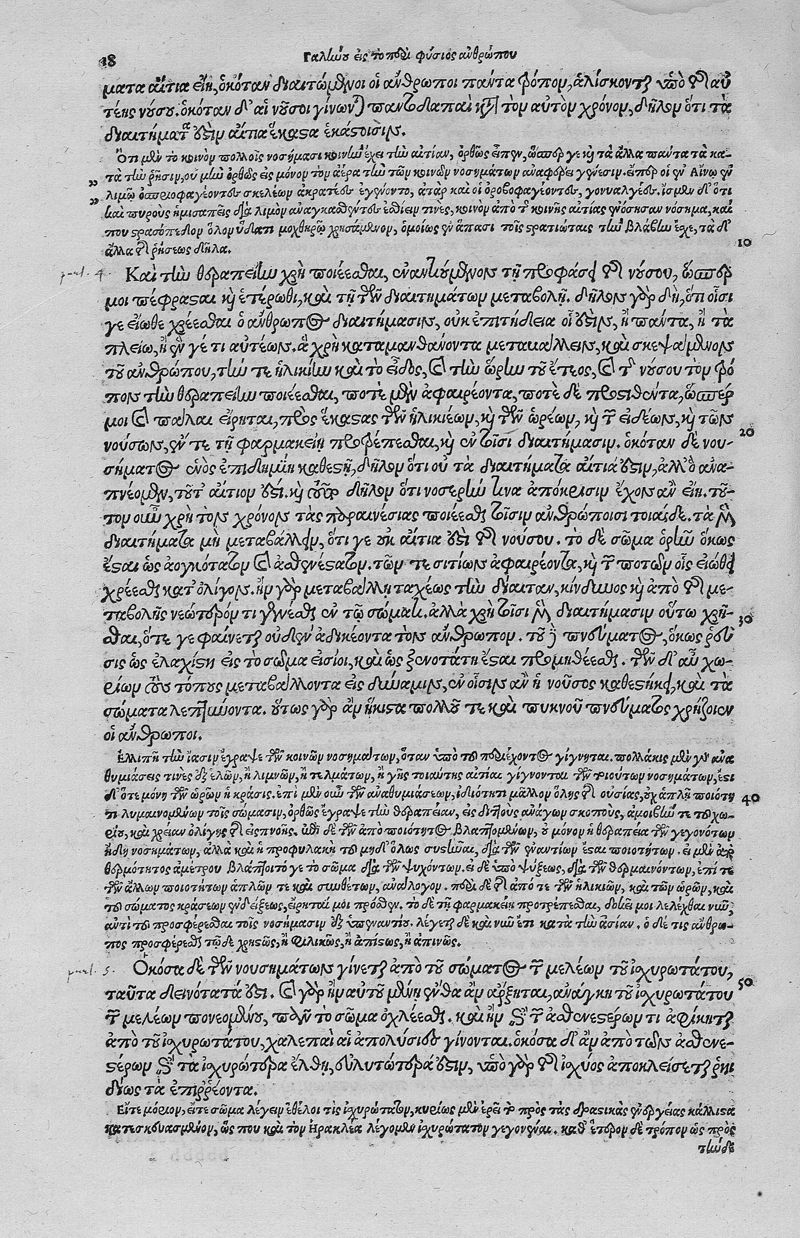 18 Γαληνοῦ εἰς τὸ περὶ φύσιος ἀνθρώπου
ματα αἴτια εἴη, ὁκόταν διαιτώμενοι οἱ ἄνθρωποι πάντα τρόπον, ἁλίσκονται ὑπὸ τῆς αὐ-
τέης νούσου. ὁκόταν δ' αἱ νοῦσοι γίνωνται παντοδαπαὶ κατὰ τὸν αὐτὸν χρόνον, δῆλον ὅτι τὰ
διαιτήματά ἐστιν αἴτια ἕκαστα ἑκάστοισιν.
Ὅτι μὲν τὸ κοινὸν πολλοῖς νοσήμασι κοινὴν ἔχει τὴν αἰτίαν, ὀρθῶς εἶπεν, ὥσπερ γε καὶ τὰ ἄλλα πάντα τὰ κα-
τὰ τὴν ῥῆσιν, οὐ μὴν ὀρθῶς εἰς μόνον τὸν ἀέρα τὴν τῶν κοινῶν νοσημάτων ἀναφέρει γένεσιν. εἴπερ οἱ ἐν Αἴνῳ ἐν
„ λιμῷ ὀσπριοφαγέοντες σκελέων ἀκρατέες ἐγένοντο, ἀτὰρ καὶ οἱ ὀροβοφαγέοντες, γονυαλγέες. ἴσμεν δ' ὅτι
„ καὶ πυροὺς ἡμισαπεῖς διὰ λιμὸν ἀναγκασθέντες ἐσθίειν τινὲς, κοινὸν ἀπὸ τῆς κοινῆς αἰτίας ἐνόσησαν νόσημα, καί
που στρατόπεδον ὅλον ὕδατι μοχθηρῷ χρησάμενον, ὁμοίως ἐν ἅπασι τοῖς στρατιώταις τὴν βλάβην ἔσχε, τὰ δ'
ἄλλα τῆς ῥήσεως δῆλα. 10
part. 4. Καὶ τὴν θεραπείην χρὴ ποιέεσθαι, ἐναντιούμενον τῇ προφάσει τῆς νούσου, ὥσπερ
μοι πέφρασται καὶ ἑτέρωθι, καὶ τῇ τῶν διαιτημάτων μεταβολῇ. δῆλον γὰρ δὴ, ὅτι οἷσί
γε εἴωθε χρέεσθαι ὁ ἄνθρωπος διαιτήμασιν, οὐκ ἐπιτήδεια οἷ ἐστιν, ἢ πάντα, ἢ τὰ
πλείω, ἢ ἕν γέ τι αὐτέων. ἃ χρὴ καταμανθάνοντα μεταβάλλειν, καὶ σκεψάμενον
τοῦ ἀνθρώπου, τήν τε ἡλικίην καὶ τὸ εἶδος, καὶ τὴν ὥρην τοῦ ἔτεος, καὶ τῆς νούσου τὸν τρό-
πον τὴν θεραπείην ποιέεσθαι, ποτὲ μὲν ἀφαιρέοντα, ποτὲ δὲ προστιθέντα, ὥσπέρ
μοι καὶ πάλαι εἴρηται, πρὸς ἑκάστας τῶν ἡλικιέων, καὶ τῶν ὡρέων, καὶ τῶν εἰδέων, καὶ τῶν
νούσων, ἔν τε τῇ φαρμακείῃ προτρέπεσθαι, καὶ ἐν τοῖσι διαιτήμασιν. ὁκόταν δὲ νου- 20
σήματος ἑνὸς ἐπιδημίη καθεστήκῃ, δῆλον ὅτι οὐ τὰ διαιτήματα αἴτιά ἐστιν, ἀλλ' ὃ ἀνα-
πνέομεν, τοῦτ' αἴτιόν ἐστι, καὶ τοῦτο δῆλον ὅτι νοσερήν τινα ἀπόκρισιν ἔχον ἂν εἴη. τοῦ-
τον οὖν χρὴ τὸν χρόνον τὰς παραινέσιας ποιέεσθαι τοῖσιν ἀνθρώποισι τοιάσδε. τὰ μὲν
διαιτήματα μὴ μεταβάλλειν, ὅτι γε οὐκ αἴτιά ἐστι τῆς νούσου. τὸ δὲ σῶμα ὁρῆν ὅκως
ἔσται ὡς ἀογκότατον καὶ ἀσθενέστατον. τῶν τε σιτίων ἀφαιρέοντα, καὶ τῶν ποτῶν οἷς εἰώθει
χρέεσθαι κατ' ὀλίγον. ἢν γὰρ μεταβάλλῃ ταχέως τὴν δίαιταν, κίνδυνος καὶ ἀπὸ τῆς με-
ταβολῆς νεώτερόν τι γενέσθαι ἐν τῷ σώματι. ἀλλὰ χρὴ τοῖσι μὲν διαιτήμασιν οὕτω χρῆ-
σθαι, ὅτε γε φαίνεται οὐδὲν ἀδικέοντα τὸν ἄνθρωπον. τοῦ δὲ πνεύματος, ὅκως ἡ ῥύ- 30
σις ὡς ἐλαχίστη εἰς τὸ σῶμα εἰσίοι, καὶ ὡς ξενοτάτη ἔσται προμηθέεσθαι. τῶν δ' αὖ χω-
ρίων τοὺς τόπους μεταβάλλοντα εἰς δύναμιν, ἐν οἷσιν ἂν ἡ νοῦσος καθεστήκῃ, καὶ τὰ
σώματα λεπτύνοντα. οὕτως γὰρ ἂν ἥκιστα πολλοῦ τε καὶ πυκνοῦ πνεύματος χρῄζοιεν
οἱ ἄνθρωποι.
Ἐλλιπῆ τὴν ἴασιν ἔγραψε τῶν κοινῶν νοσημάτων, ὅταν ὑπὸ τοῦ περιέχοντος γίγνηται. πολλάκις μὲν γὰρ ἀνα-
θυμιάσεις τινὲς ἐξ ἑλῶν, ἢ λιμνῶν, ἢ τελμάτων, ἢ γῆς τοιαύτης αἰτίαι γίγνονται τῶν τοιούτων νοσημάτων, ἔστι
δ' ὅτε μόνη τῶν ὡρῶν ἡ κρᾶσις. ἐπὶ μὲν οὖν τῶν ἀναθυμιάσεων, ἰδιότητι μᾶλλον ὅλης τῆς οὐσίας, οὐχ ἁπλῇ ποιότη- 40
τι λυμαινομένων τοῖς σώμασιν, ὀρθῶς ἔγραψε τὴν θεραπείαν, εἰς δύο τοὺς ἀνάγων σκοποὺς, ἀμοιβήν τε τοῦ χω-
ρίου, καὶ χρείαν ὀλίγης τῆς εἰσπνοῆς. ἐπὶ δὲ τῶν ἀπὸ ποιότητος βλαπτομένων, οὐ μόνον ἡ θεραπεία τῶν γεγονότων
ἤδη νοσημάτων, ἀλλὰ καὶ ἡ προφυλακὴ τοῦ μηδ' ὅλως συστῆναι, διὰ τῶν ἐναντίων ἔσται ποιοτήτων. εἰ μὲν ὑπὸ
θερμότητος ἀμέτρου βλάπτοιτό γε τὸ σῶμα διὰ τῶν ψυχόντων. εἰ δὲ ὑπὸ ψύξεως, διὰ τῶν θερμαινόντων, ἐπί τε
τῶν ἄλλων ποιοτήτων ἁπλῶν τε καὶ συνθέτων, ἀνάλογον. περὶ δὲ τῆς ἀπό τε τῶν ἡλικιῶν, καὶ τῶν ὡρῶν, καὶ
τοῦ σώματος κράσεων ἐνδείξεως, εἴρηταί μοι πρόσθεν. τὸ δὲ τῇ φαρμακείῃ προτρέπεσθαι, δοκεῖ μοι λελέχθαι νῦν,
ἀντὶ τοῦ προσφέρεσθαι τοῖς νοσήμασιν ἐξ ὑπεναντίου. λέγεται δὲ καὶ νῦν ἔτι κατὰ τὴν ἀσίαν. ὁ δέ τις ἄνθρω-
πος προσφέρεται τῷδε χρηστῶς, ἢ φιλικῶς, ἢ ἀπίστως, ἢ ἀπηνῶς.
part. 5. Ὁκόσα δὲ τῶν νουσημάτων γίνεται ἀπὸ τοῦ σώματος τῶν μελέων τοῦ ἰσχυροτάτου,
ταῦτα δεινότατά ἐστι. καὶ γὰρ ἢν αὐτοῦ μένῃ ἔνθα ἂν ἄρξηται, ἀνάγκη τοῦ ἰσχυροτάτου 50
τῶν μελέων πονεομένου, πᾶν τὸ σῶμα ὀχλέεσθαι. καὶ ἢν ἐπὶ τῶν ἀσθενεστέρων τι ἀφίκηται
ἀπὸ τοῦ ἰσχυροτάτου, χαλεπαὶ αἱ ἀπολύσιες γίνονται. ὁκόσα δ' ἂν ἀπὸ τῶν ἀσθενε-
στέρων ἐπὶ τὰ ἰσχυρότερα ἔλθῃ, εὐλυτώτερά ἐστιν, ὑπὸ γὰρ τῆς ἰσχύος ἀποκλείσεται ῥηι
δίως τὰ ἐπιῤῥέοντα.
Εἴτε μόριον, εἴτε σῶμα λέγειν ἐθέλοι τις ἰσχυρότατον, κυρίως μὲν ἐρεῖ τὸ πρὸς τὰς δραστικὰς ἐνεργείας κάλλιστα
κατεσκευασμένον, ὥς που καὶ τὸν Ἡρακλέα λέγομεν ἰσχυρότατον γεγονέναι. καθ' ἕτερον δὲ τρόπον ὡς πρὸς
τήνδε